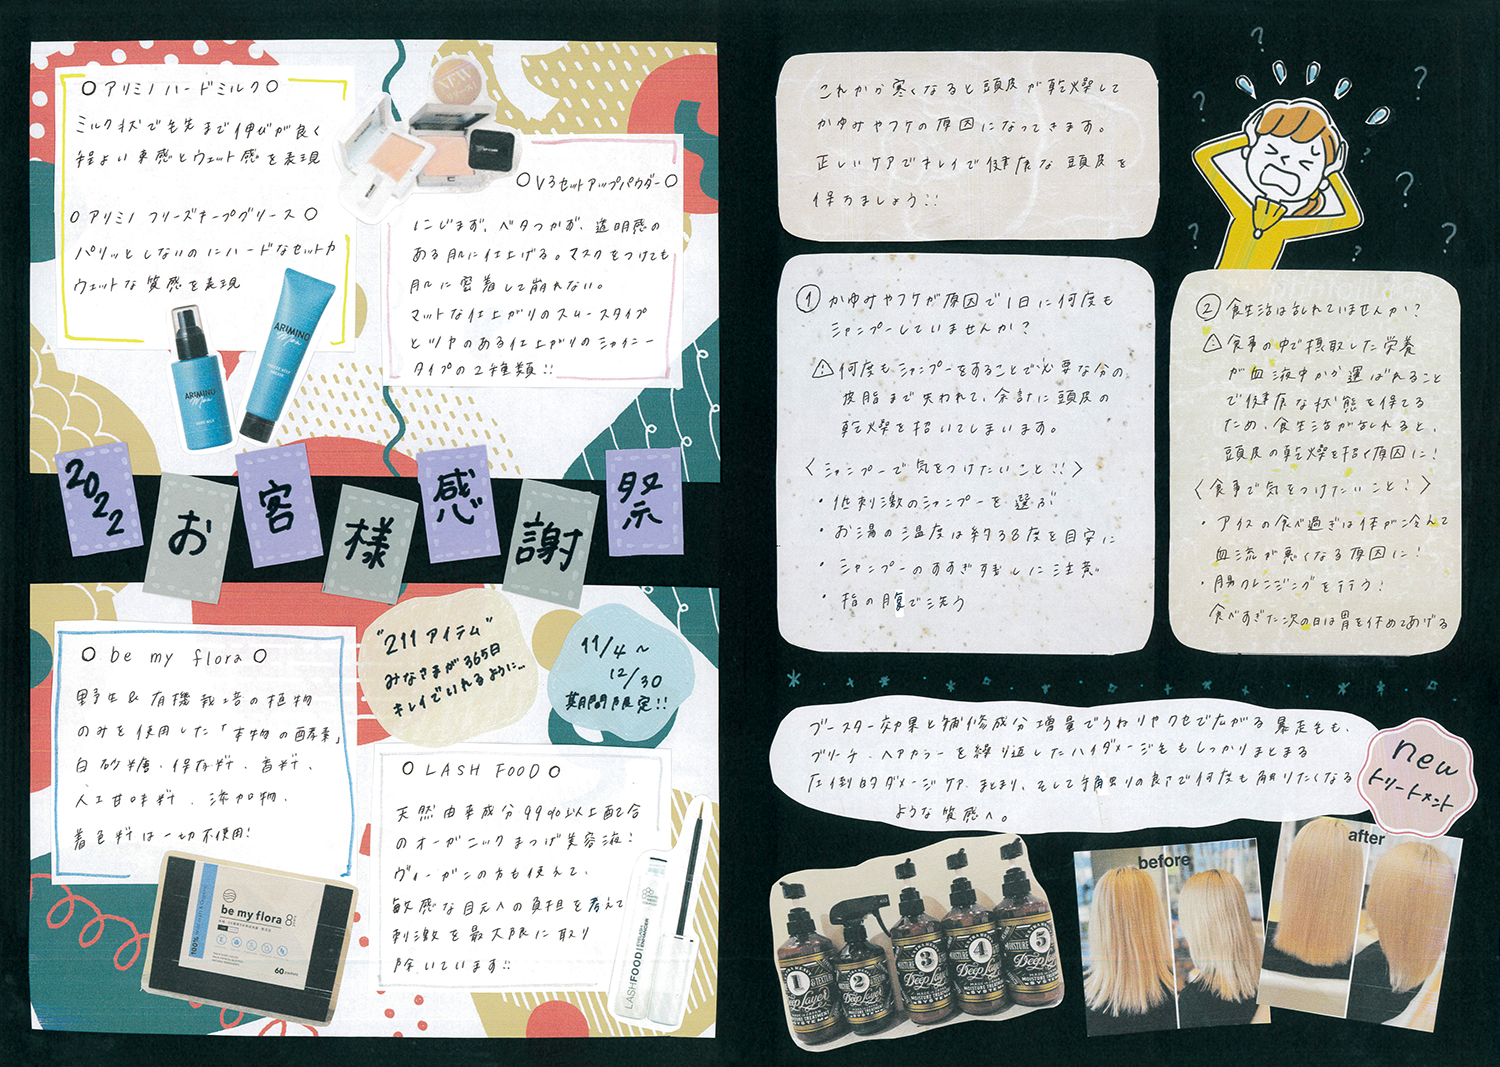 ○アリミノハードミルク○
ミルク状で毛先まで伸びが良く
程よい束感とウェット感を表現
○アリミノ フリーズキープグリース○
パリッとしないのにハードなセット力
ウェットな質感を表現
ARIMINO
Men
ARIMINO
Men
FREEZE KEEP
GREASE
HARD MILK
NEW
○V3セットアップパウダー○
にじまず、ベタつかず、透明感の
ある肌に仕上げる。マスクをつけても
肌に密着して崩れない。
マットな仕上がりのスムースタイプ
とツヤのある仕上がりのシャイニー
タイプの2種類!!
2022
お客様感謝祭
"211アイテム"
みなさまが365日
キレイでいれるように…
11/4〜
12/30
期間限定!!
○be my flora○
野生&有機栽培の植物
のみを使用した「本物の酵素」
白砂糖、保存料、香料、
人工甘味料、添加物、
着色料は一切不使用!
be my flora 8
100%
60
○LASH FOOD○
天然由来成分99%以上配合
のオーガニックまつげ美容液!
ヴィーガンの方も使えて、
敏感な目元への負担を考えて
刺激を最大限に取り
除いています!!
LASHFOOD
EYELASH
ENHANCER
これから寒くなると頭皮が乾燥して
かゆみやフケの原因になってきます。
正しいケアでキレイで健康な頭皮を
保ちましょう!!
①かゆみやフケが原因で1日に何度も
シャンプーしていませんか?
⚠何度もシャンプーをすることで必要な分の
皮脂まで失われて、余計に頭皮の
乾燥を招いてしまいます。
〈シャンプーで気をつけたいこと!!〉
・低刺激のシャンプーを選ぶ
・お湯の温度は約38度を目安に
・シャンプーのすすぎ残しに注意
・指の腹で洗う
? ? ? ? ? ?
②食生活は乱れていませんか?
⚠食事の中で摂取した栄養
が血液中から運ばれること
で健康な状態を保てる
ため、食生活が乱れると、
頭皮の乾燥を招く原因に!
〈食事で気をつけたいこと!〉
・アイスの食べ過ぎは体が冷えて
血流が悪くなる原因に!
・腸クレンジングを行う!
食べすぎた次の日は胃を休めてあげる
ブースター効果と補修成分増量でうねりやクセで広がる暴走毛も、
ブリーチ、ヘアカラーを繰り返したハイダメージ毛もしっかりまとまる
圧倒的ダメージケア、まとまり、そして手触りの良さで何度も触りたくなる
ような質感へ。
new
トリートメント
1
Deep Layer
MOISTURE TREATMENT
2
Deep Layer
3
Deep Layer
4
MOISTURE
Deep Layer
MOISTURE TREATMENT
5
MOISTURE
Deep Layer
MOISTURE TREATMENT
before
after